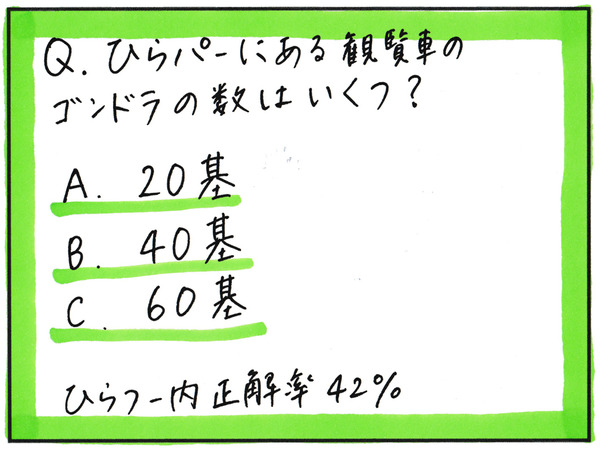 Q. ひらパーにある観覧車の
ゴンドラの数はいくつ?
A. 20基
B. 40基
C. 60基
ひらつー内正解率42%